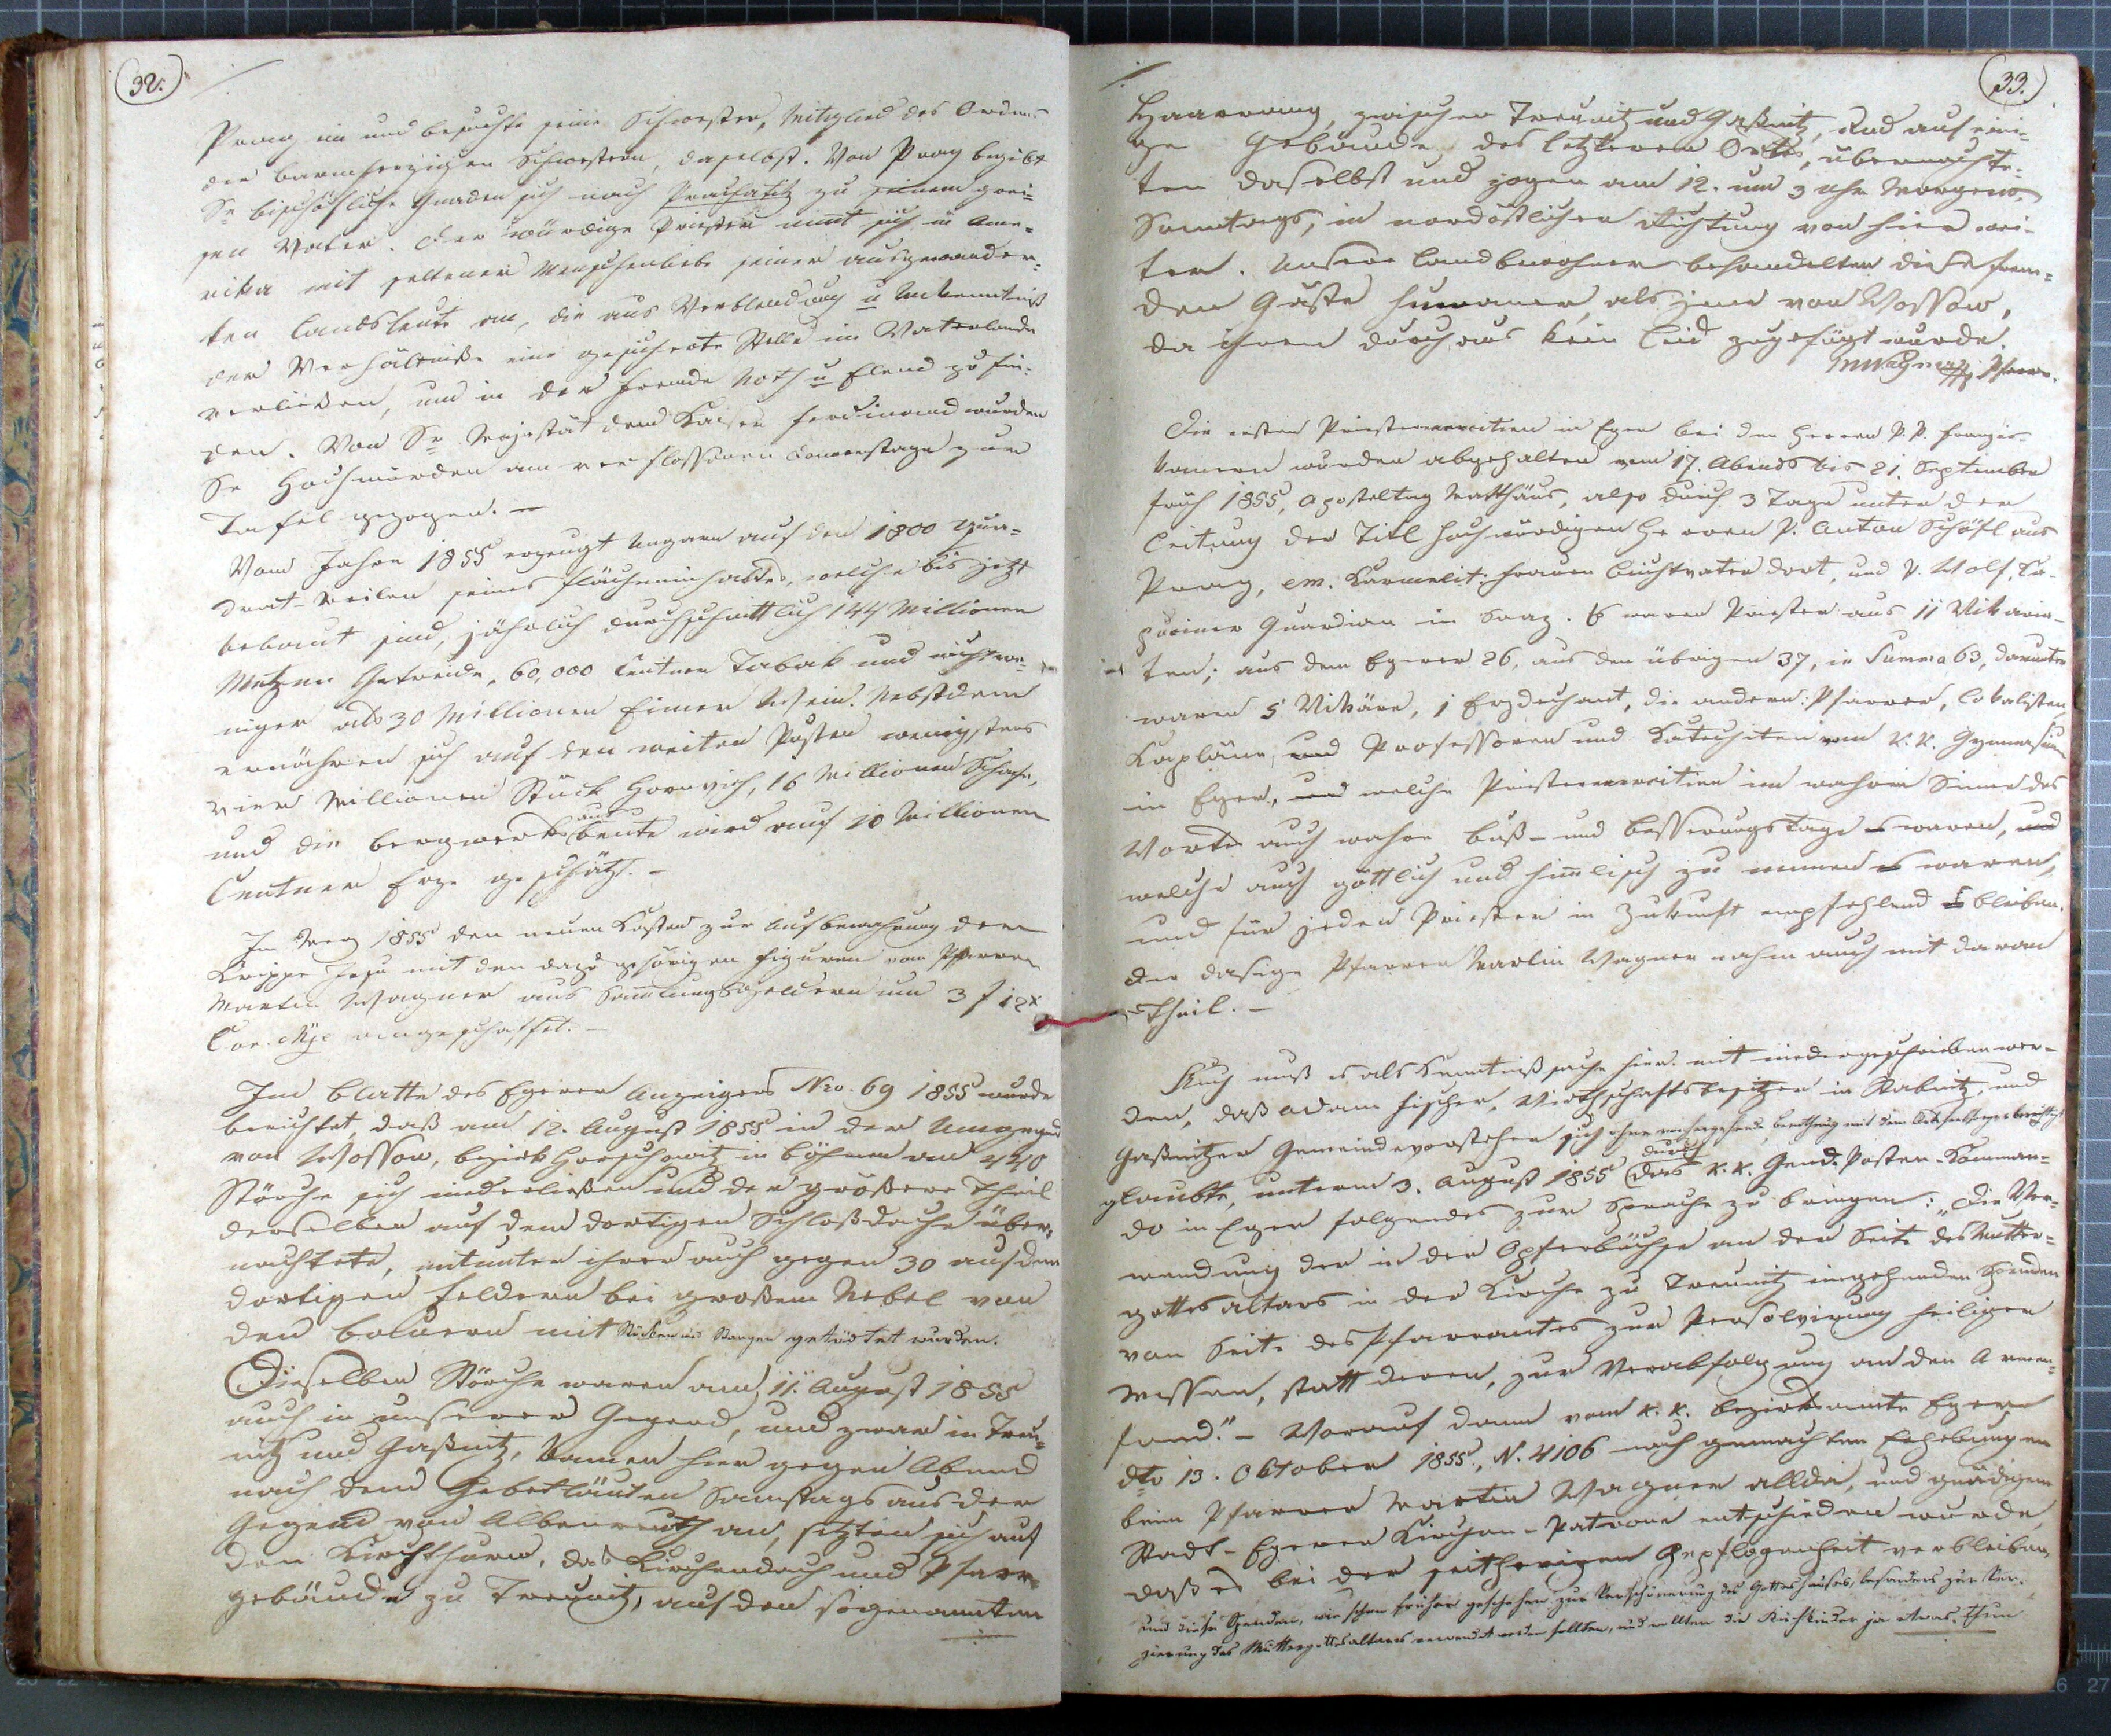 32.
Prag im und besuchte seine Schwester, Mitglied des Ordens
der barmherzigen Schwestern, daselbst. Von Prag begibt
Se bischöfliche Gnaden sich nach Prachatitz zu seinem grei-
sen Vater. Der würdige Priester nimt sich in Ame-
rika mit seltener Menschenliebe seiner ausgewander-
ten Landsleute an, die aus Verblendung u Unkenntniß
der Verhältniße eine gesicherte Stelle im Vaterlande
verließen, um in der Fremde Noth u Elend zu fin-
den. Von Sr Majestät dem Kaiser Ferdinand wurden
Se Hochwürden am verflossenen Donnerstage zur
Tafel gezogen. —
Vom Jahre 1855 erzeugt Ungarn auf den 1800 Qua-
drat-Meilen seines Flächeninhaltes, welche bis jetzt
bebaut sind, jährlich durchschnittlich 144 Millionen
Metzen Getreide, 60,000 Centner Tabak und nicht we-
niger als 30 Millionen Eimer Wein. Nebstdem
ernähren sich auf den weiten Pusten wenigstens
vier Millionen Stück Hornvich, 16 Millionen Schafe,
und die Bergwerksausbeute wird auf 10 Millionen
Centner Erze geschätzt. —
Im Merz 1855 den neuen Kasten zur Aufbewahrung der
Krippe Jesu mit den dazu gehörigen Figuren vom Pfarrer
Martin Wagner aus Sammlungsgeldern um 3 f 12x
Con. Mze angeschaffet. —
Im Blatte des Egerer Anzeigers Nro. 69 1855 wurde
berichtet, daß am 12. August 1855 in der Umgegend
von Wossow, Bezirk Horschowitz in Böhmen an 440
Störche sich niederließen und der größere Theil
derselben auf dem dortigen Schloßdache über-
nachtete, mitunter ihrer auch gegen 30 auf den
dortigen Feldern bei großem Nebel von
den Bauern mit Stöcken und Stangen getödtet wurden.
Dieselben Störche waren am 11. August 1855
auch in unserer Gegend, und zwar in Treu-
nitz und Gaßnitz, kamen hier gegen Abend
nach dem Gebetläuten Samstags aus der
Gegend von Albenreuth an, setzten sich auf
den Kirchthurm, das Kirchendach und Pfarr-
gebäude zu Treunitz, auf den sogenannten
33.
zwischen Treunitz und Gaßnitz, und auf eini-
ge Gebäude des letzteren Ortes, übernachte-
ten daselbst und zogen am 12. um 3 Uhr Morgens,
Sonntags, in nordöstlicher Richtung von hier wei-
ter. Unsere Landbewohner behandelten diese frem-
den Gäste humaner, als jene von Wossow,
da ihnen durchaus kein Leid zugefügt wurde.
MWagner Pfarrer.
Die ersten Priesterexercitien in Eger bei den Herren P. P. Franzis-
kanern wurden abgehalten vom 17. Abends bis 21. September
früh 1855, Aposteltag Matthäus, also durch 3 Tage unter der
Leitung der Titl hochwürdigen Herren P. Anton Schöfl aus
Prag, em. Karmelit: Frauen Beichtvater dort, und P. Wolf, Ka-
puziner Guardian in Saaz. Es waren Priester aus 11 Vikaria-
ten; aus dem Egerer 26, aus den übrigen 37, in Summa 63, darunter
waren 5 Vikäre, 1 Erzdechant, die andern: Pfarrer, Lokalisten,
Kapläne, und Professoren und Katecheten vom k. k. Gymnasium
in Eger, und welche Priesterexercitien im wahren Sinne des
Worts auch wahre Buß- und Besserungstage waren, und
welche auch göttlich und himmlisch zu nennen waren,
und für jeden Priester in Zukunft empfehlend bleiben.
Der dasige Pfarrer Martin Wagner nahm auch mit daran
Theil. —
Auch muß es als Kenntnißsache hier mit niedergeschrieben wer-
den, daß Adam Fischer, Wirthschaftsbesitzer in Stabnitz, und
Gaßnitzer Gemeindevorsteher sich ohne vorhergehende Berathung mit dem Ortsseelsorger berechtigt
glaubte, unterm 3. August 1855 durch das k. k. Gend. Posten-Komman-
do in Eger folgendes zur Sprache zu bringen: „Die Ver-
wendung der in der Opferbüchse an der Seite des Mutter-
gottesaltars in der Kirche zu Treunitz eingehenden Spenden
von Seite des Pfarramtes zur Persolvirung heiliger
Messen, statt deren, zur Verabfolgung an den Armen-
fond." — Worauf dann vom k. k. Bezirksamte Eger
dto 13. Oktober 1855, N. 4106 nach gemachten Erhebungen
beim Pfarrer Martin Wagner allda, und gnädigem
Stadt-Egerer Kirchen-Patrone entschieden wurde,
daß es bei der seitherigen Gepflogenheit verbleiben,
und diese Spenden, wie schon früher geschehen zur Verschönerung des Gotteshauses, besonders zur Ver-
zierung des Muttergottesaltares verwendet werden sollten, und wollten die Kirchkinder ja etwas thun